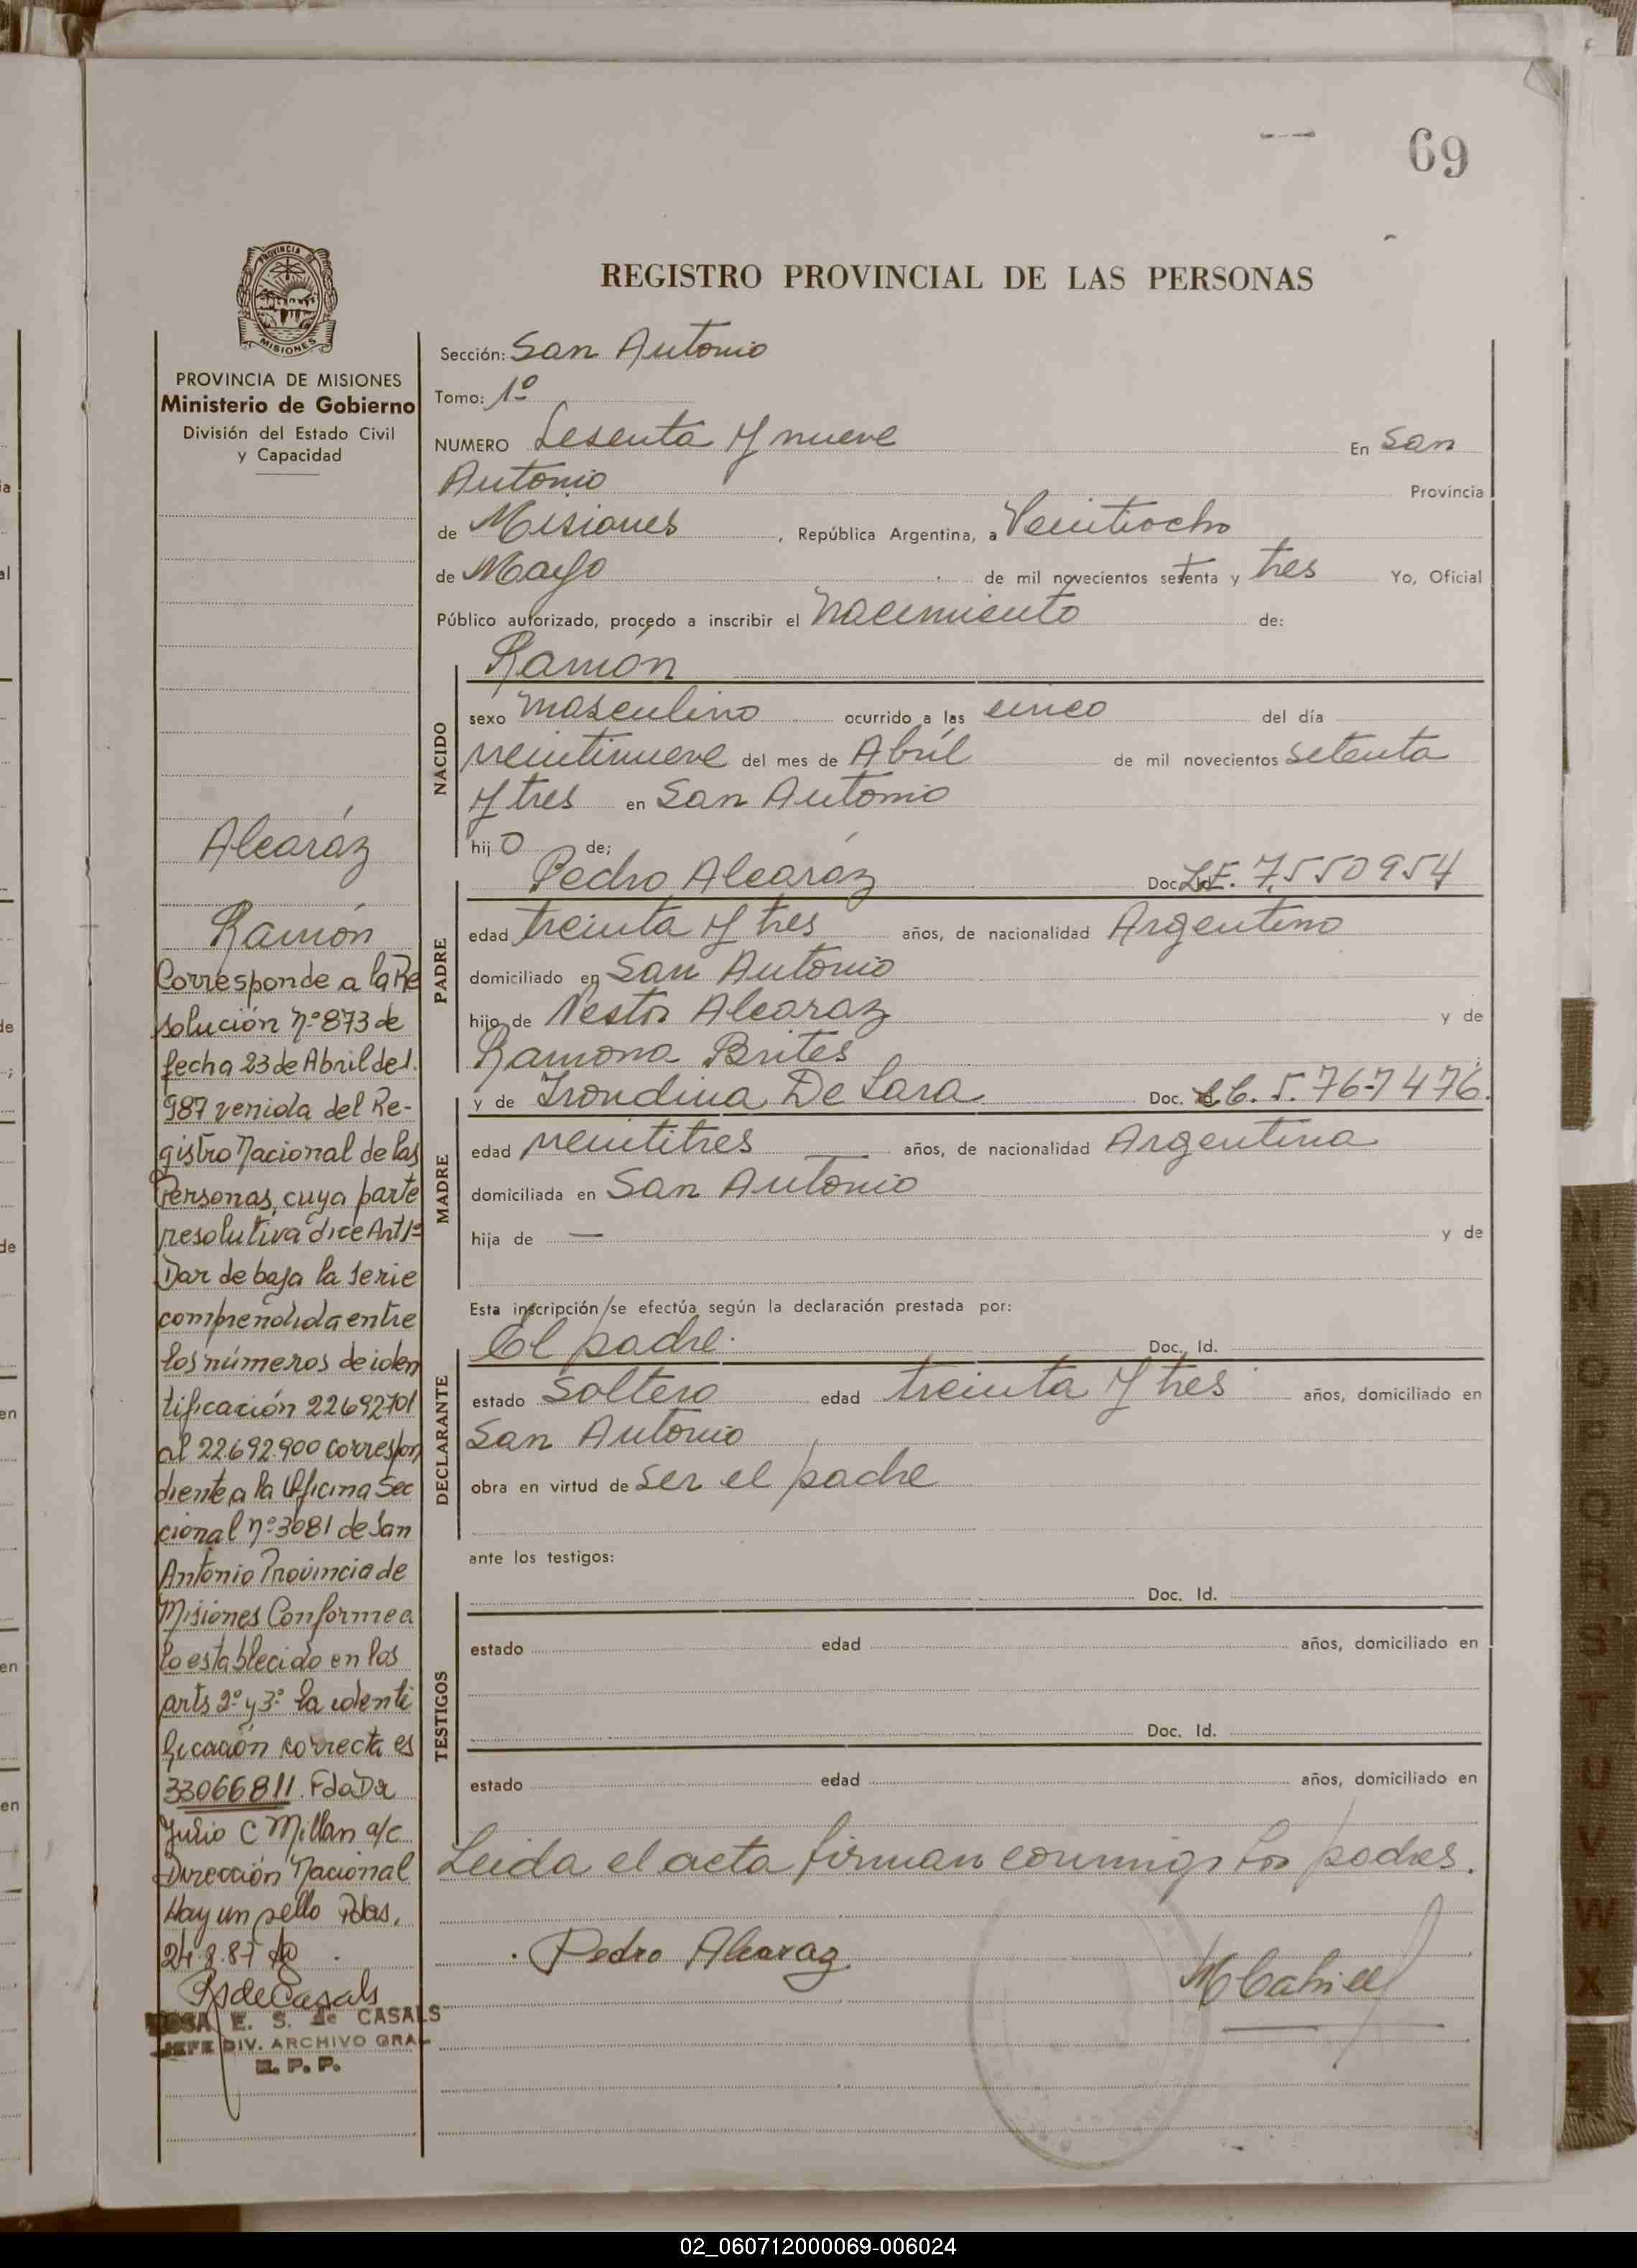 69
REGISTRO PROVINCIAL DE LAS PERSONAS
PROVINCIA DE
MISIONES
PROVINCIA DE MISIONES
Ministerio de Gobierno
División del Estado Civil
y Capacidad
Alcaráz
Ramón
Corresponde a la Re
solución Nº 873 de
fecha 23 de Abril de 1.
987 venida del Re-
gistro Nacional de las
Personas, cuya parte
resolutiva dice Art 1º
Dar de baja la serie
comprendida entre
los números de iden
tificación 22692701
al 22.692.900 correspon
diente a la Oficina Sec
cional Nº 3081 de San
Antonio Provincia de
Misiones Conforme a
lo establecido en los
arts 2º y 3º la identi
ficación correcta es
33066811. Fdo Dr
Julio C Millan a/c
Dirección Nacional
Hay un sello Pdas,
24.8.87
RsdeCasals
ROSA E. S. de CASALS
JEFE DIV. ARCHIVO GRAL
R. P. P.
Sección: San Antonio
Tomo: 1º
NUMERO Sesenta y nueve En San
Antonio Provincia
de Misiones , República Argentina, a Veintiocho
de Mayo de mil novecientos setenta y tres Yo, Oficial
Público autorizado, procedo a inscribir el nacimiento de:
Ramón
NACIDO
sexo masculino ocurrido a las cinco del día
veintinueve del mes de Abril de mil novecientos setenta
y tres en San Antonio
hij o de;
PADRE
Pedro Alcaráz Doc. Id. L.E. 7.550954
edad treinta y tres años, de nacionalidad Argentino
domiciliado en San Antonio
hijo de Nestor Alcaraz y de
Ramona Brites
MADRE
y de Irondina De Lara Doc. L.C. 5.767476.
edad veintitres años, de nacionalidad Argentina
domiciliada en San Antonio
hija de — y de
Esta inscripción se efectúa según la declaración prestada por:
DECLARANTE
El padre. Doc. Id.
estado Soltero edad treinta y tres años, domiciliado en
San Antonio
obra en virtud de ser el padre
ante los testigos:
TESTIGOS
Doc. Id.
estado edad años, domiciliado en
Doc. Id.
estado edad años, domiciliado en
Leida el acta firman conmigo los padres.
Pedro Alcaraz
02_060712000069-006024